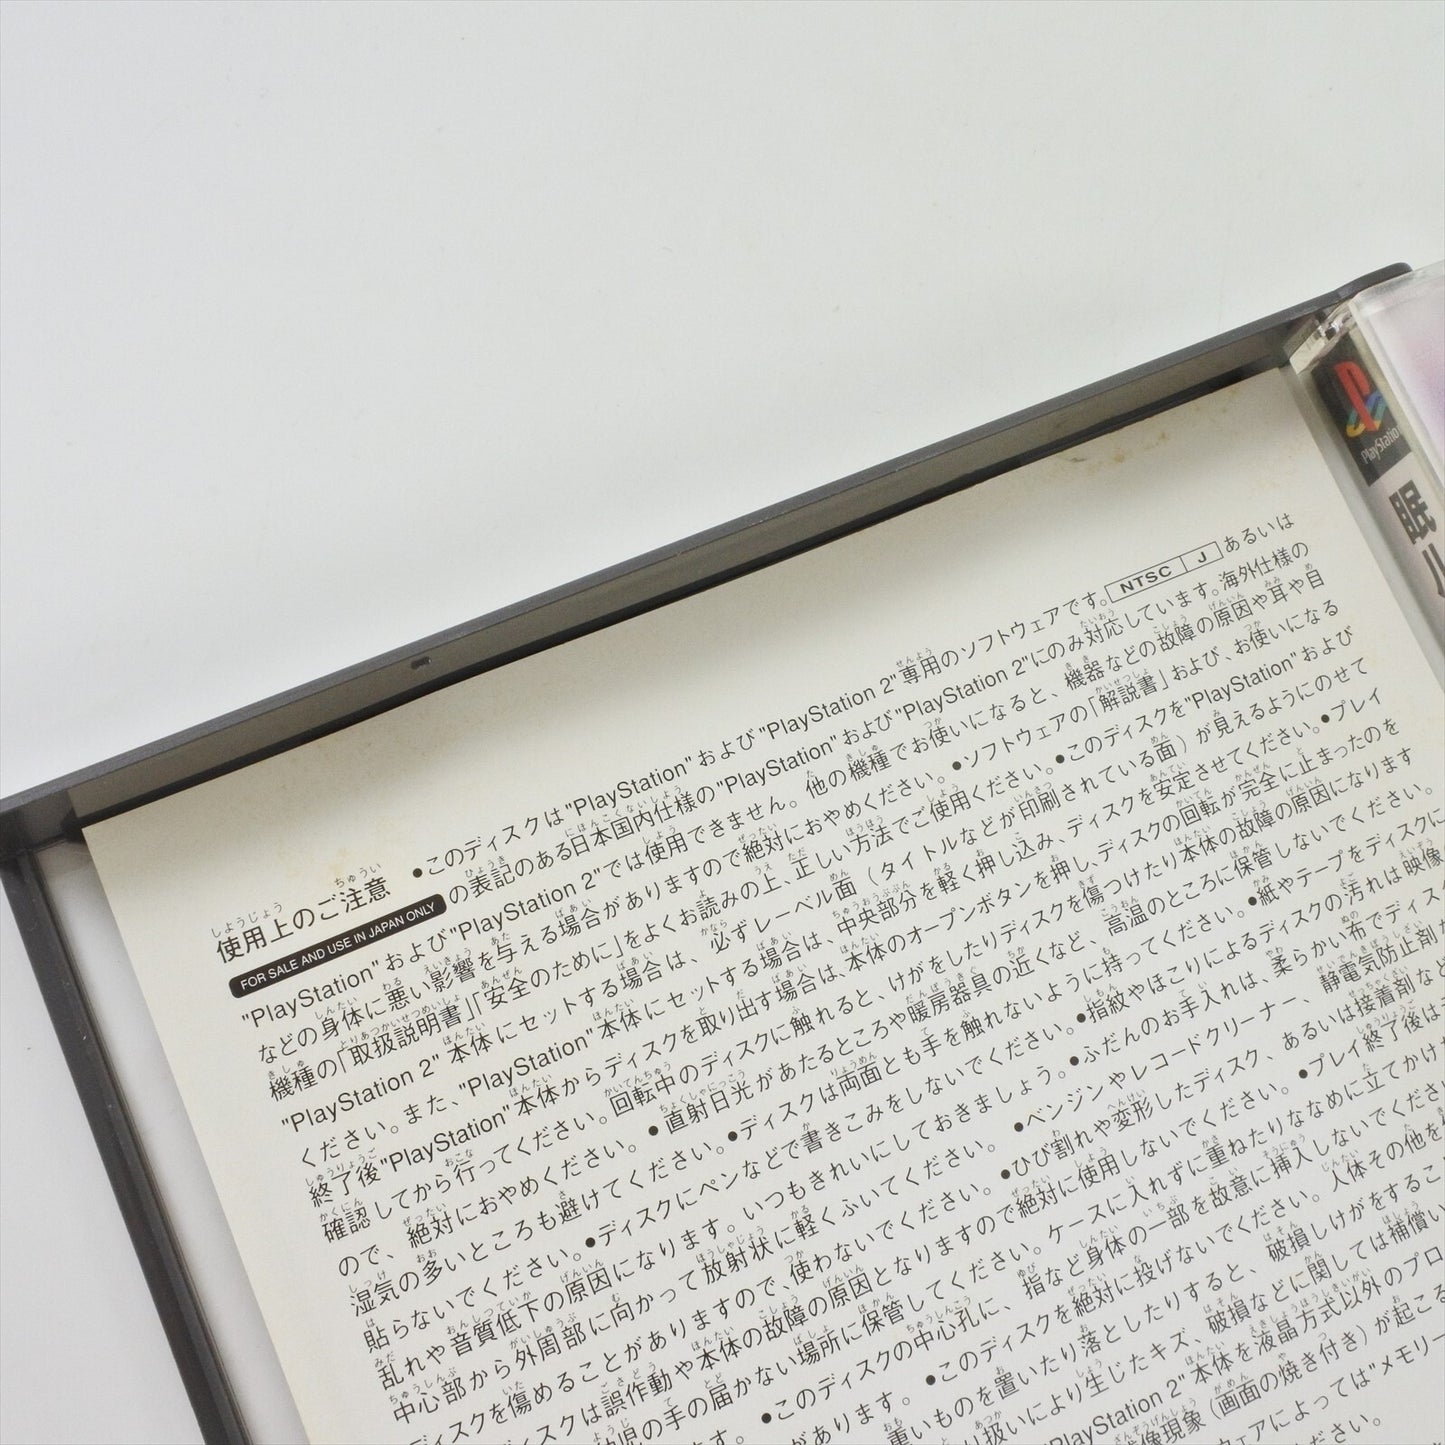 使用上のご注意 ●このディスクは"PlayStation"および"PlayStation 2"専用のソフトウェアです。NTSC J あるいは
FOR SALE AND USE IN JAPAN ONLY の表記のある日本国内仕様の"PlayStation"および"PlayStation 2"にのみ対応しています。海外仕様の
"PlayStation"および"PlayStation 2"では使用できません。他の機種でお使いになると、機器などの故障の原因や耳や目
などの身体に悪い影響を与える場合がありますので絶対におやめください。●ソフトウェアの「解説書」および、お使いになる
機種の「取扱説明書」「安全のために」をよくお読みの上、正しい方法でご使用ください。●このディスクを"PlayStation"および
"PlayStation 2"本体にセットする場合は、必ずレーベル面(タイトルなどが印刷されている面)が見えるようにのせて
ください。また、"PlayStation"本体にセットする場合は、中央部分を軽く押し込み、ディスクを安定させてください。●プレイ
終了後"PlayStation"本体からディスクを取り出す場合は、本体のオープンボタンを押し、ディスクの回転が完全に止まったのを
確認してから行ってください。回転中のディスクに触れると、けがをしたりディスクを傷つけたり本体の故障の原因になります
ので、絶対におやめください。●直射日光があたるところや暖房器具の近くなど、高温のところに保管しないでください。
湿気の多いところも避けてください。●ディスクは両面とも手を触れないように持ってください。●紙やテープをディスクに
貼らないでください。●ディスクにペンなどで書きこみをしないでください。●指紋やほこりによるディスクの汚れは映像
乱れや音質低下の原因になります。いつもきれいにしておきましょう。●ふだんのお手入れは、柔らかい布でディス
中心部から外周部に向かって放射状に軽くふいてください。●ベンジンやレコードクリーナー、静電気防止剤
ディスクを傷めることがありますので、使わないでください。●ひび割れや変形したディスク、あるいは接着剤など
ィスクは誤作動や本体の故障の原因となりますので絶対に使用しないでください。●プレイ終了後は
幼児の手の届かない場所に保管してください。ケースに入れずに重ねたりななめに立てかけ
す。●このディスクの中心孔に、指など身体の一部を故意に挿入しないでくださ
があります。●このディスクを絶対に投げないでください。人体その他を
重いものを置いたり落としたりすると、破損しけがをするこ
り扱いにより生じたキズ、破損などに関しては補償い
PlayStation 2"本体を液晶方式以外のプロ
像現象(画面の焼き付き)が起こ
ウェアによっては"メモリー
ださい。
PlayStation
眠